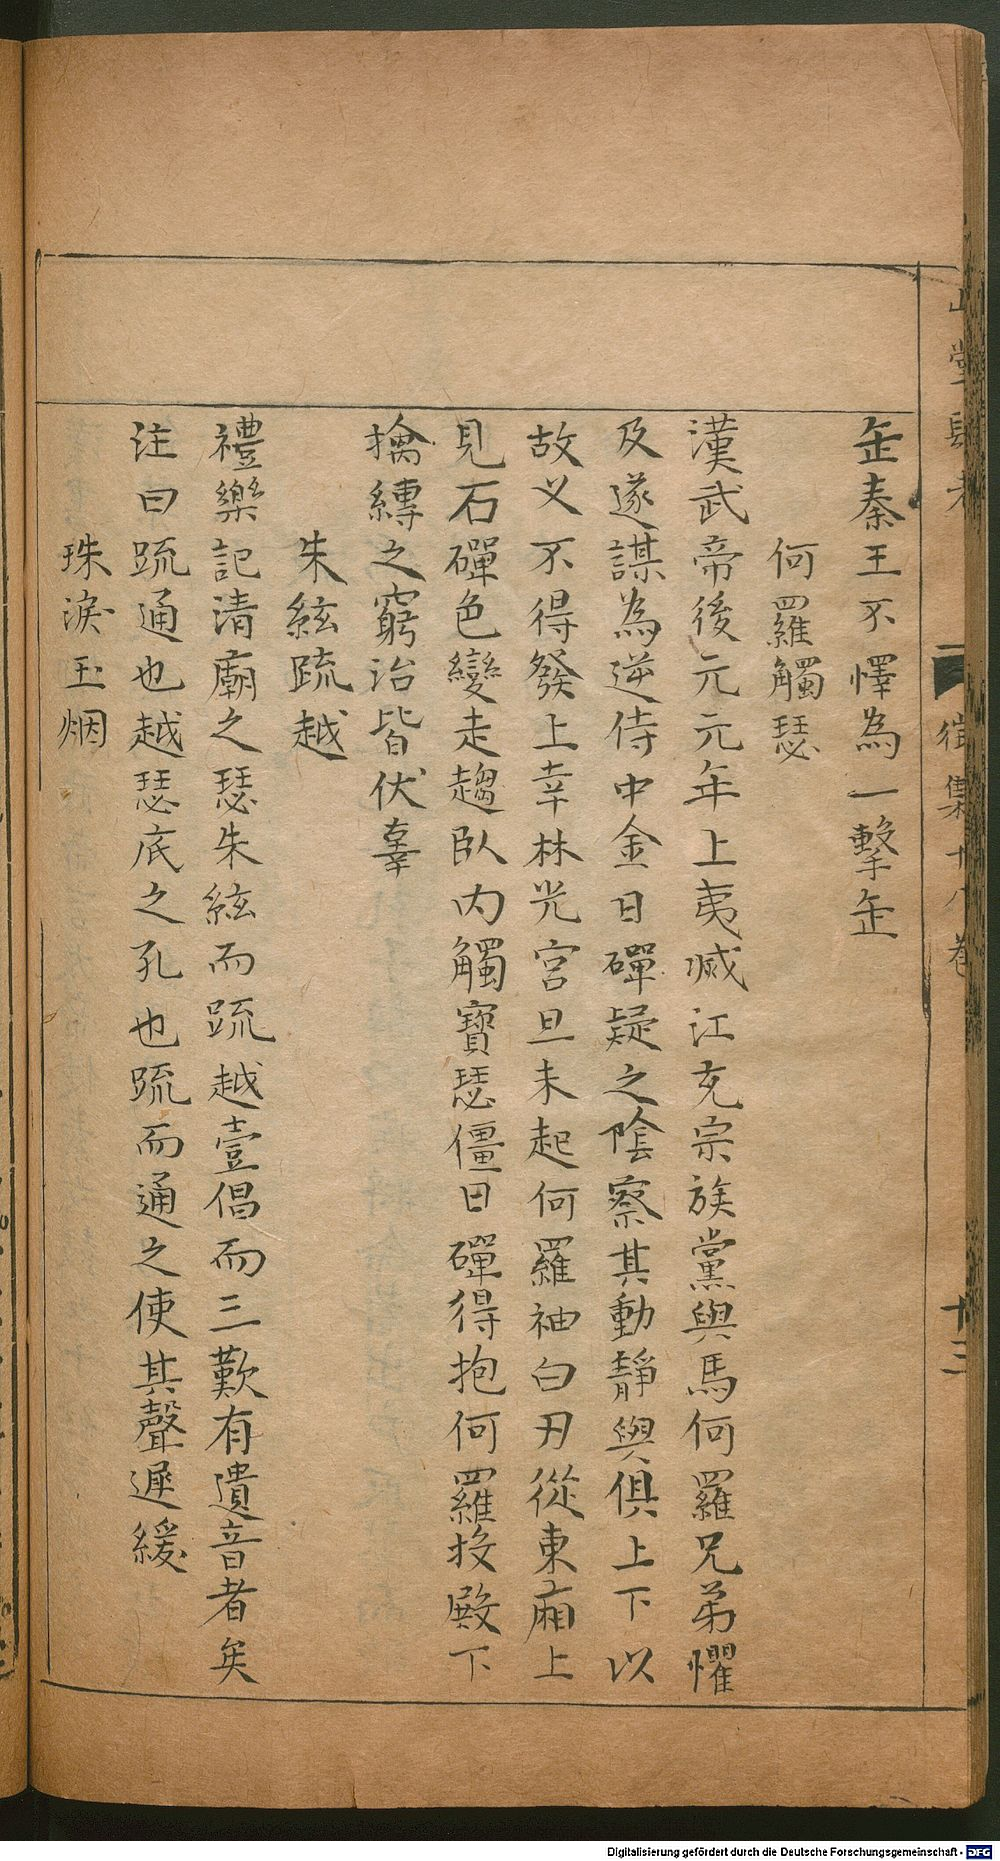 山堂肆考 徵集十八卷 十三
缶秦王不懌為一擊缶
何羅觸瑟
漢武帝後元元年上夷滅江充宗族黨與馬何羅兄弟懼
及遂謀為逆侍中金日磾疑之陰察其動靜與俱上下以
故乂不得發上幸林光宮旦未起何羅袖白刃從東廂上
見石磾色變走趨臥內觸寶瑟僵日磾得抱何羅投殿下
擒縳之窮治皆伏辜
朱絃疏越
禮樂記清廟之瑟朱絃而疏越壹倡而三歎有遺音者矣
注曰疏通也越瑟底之孔也疏而通之使其聲遲緩
珠淚玉烟
Digitalisierung gefördert durch die Deutsche Forschungsgemeinschaft - DFG